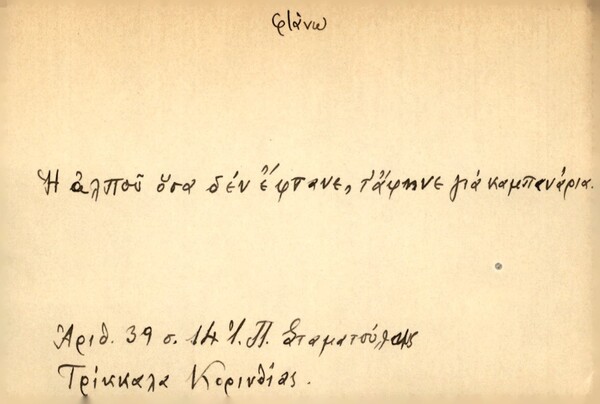 φτάνω
Ἡ ἀλποῦ ὅσα δέν ἔφτανε, τ' ἄφηνε γιά καμπανάρια.
Ἀριθ. 39 σ. 14 Ἰ. Π. Σταματούλης
Τρίκκαλα Κορινθίας.